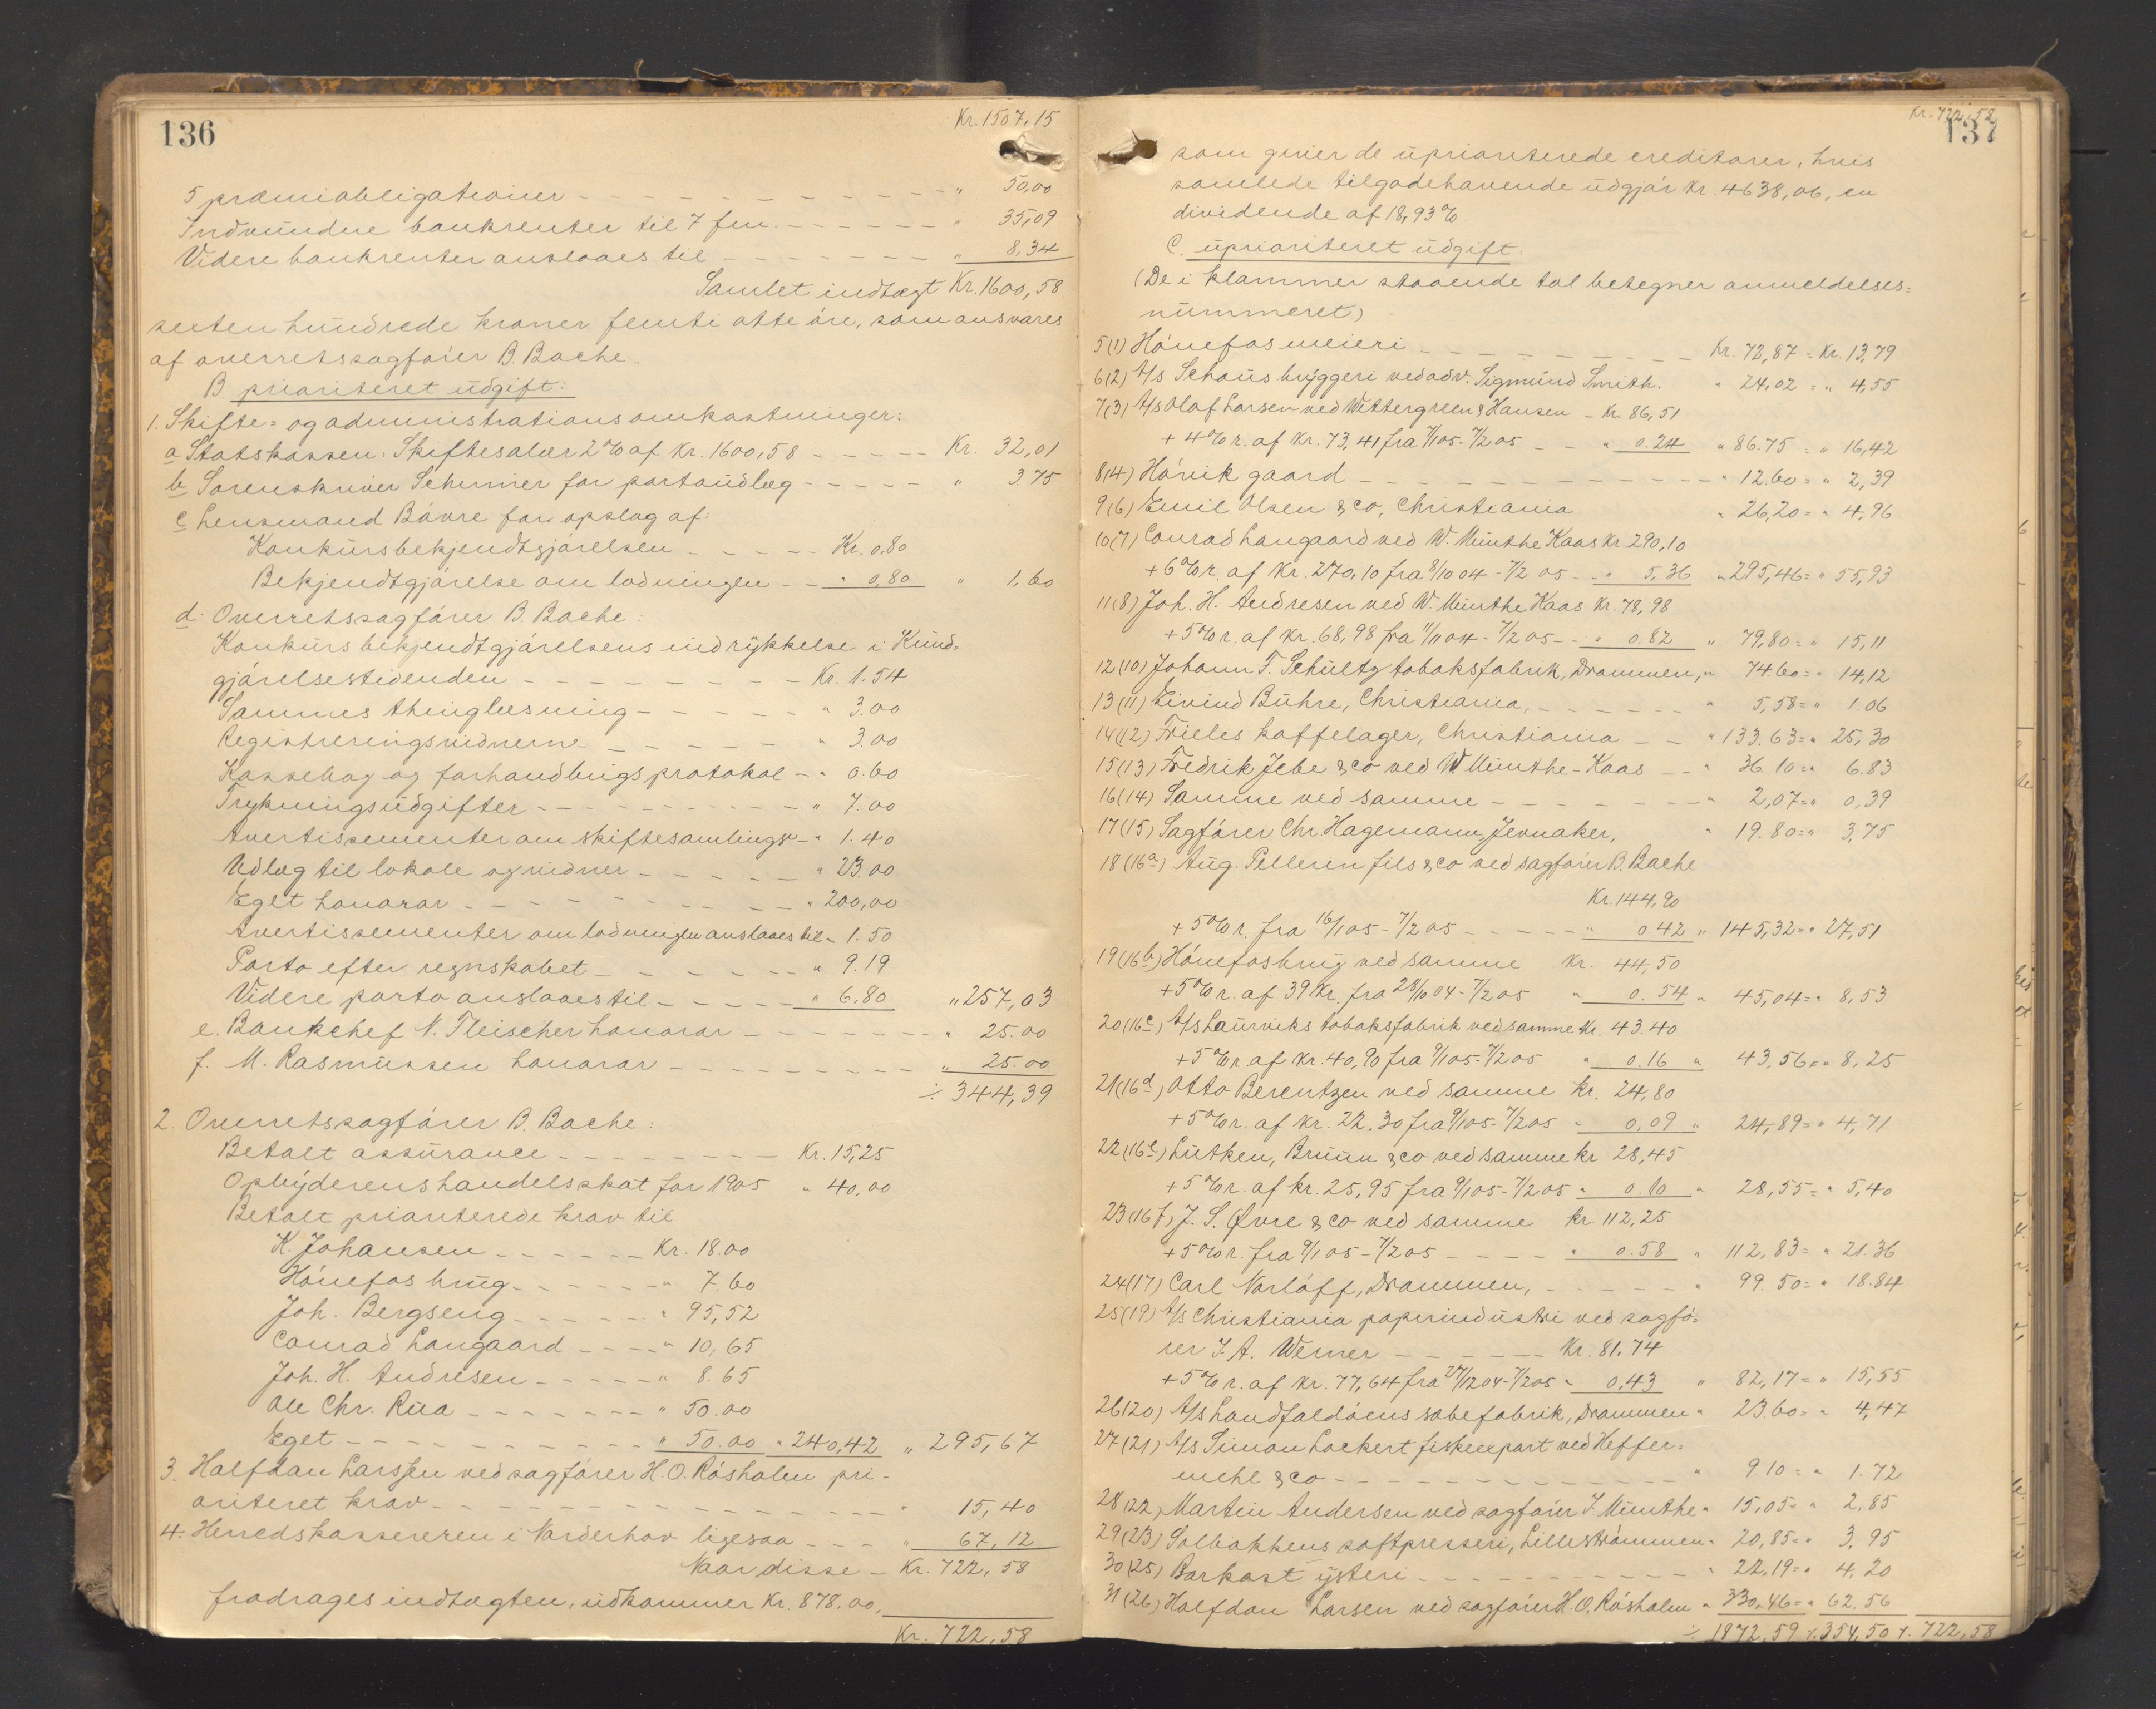 136
Kr. 1507,15
5 præmiobligationer - - - - - - - - - " 50,00
Indvundne bankrenter til 7 fm. - - - - - - " 35,09
Videre bankrenter anslaaes til - - - - - - - " 8,34
Samlet indtægt Kr. 1600,58
sexten hundrede kroner femti otte øre, som ansvares
af overretssagfører B. Bache.
B prioriteret udgift:
1. Skifte= og administrationsomkostninger:
a Statskassen: Skiftesalær 2% af Kr. 1600,58 - - - - - Kr. 32,01
b Sorenskriver Schirmer for portoudlæg - - - - - " 3.75
c Lensmand Bøvre for opslag af:
Konkursbekjendtgjørelsen - - - - - Kr. 0,80
Bekjendtgjørelse om lodningen - - " 0,80 " 1,60
d. Overretssagfører B. Bache:
Konkursbekjendtgjørelsens indrykkelse i Kund=
gjørelsestidenden - - - - - - - - - Kr. 1.54
Sammes thinglæsning - - - - - - " 3.00
Registreringsvidnerne - - - - - - " 3.00
Kassebog og forhandlingsprotokol - " 0.60
Trykningsudgifter - - - - - - - - - - " 7.00
Avertissementer om skiftesamlinger - " 1.40
Udlæg til lokale og vidner - - - - - - " 23.00
Eget honorar - - - - - - - - - - - " 200,00
Avertissementer om lodningen anslaaes til " 1.50
Porto efter regnskabet - - - - - - - " 9.19
Videre porto anslaaes til - - - - - " 6,80 " 257,03
e. Bankchef N. Fleischer honorar - - - - - - - - " 25.00
f. M. Rasmussen honorar - - - - - - - - - " 25.00
÷ 344,39
2. Overretssagfører B. Bache:
Betalt assurance - - - - - - - - Kr. 15,25
Opbyderens handelsskat for 1905 " 40,00
Betalt prioriterede krav til
K. Johansen - - - - - - Kr. 18.00
Hønefos brug - - - - - - " 7.60
Joh. Bergseng - - - - - " 95,52
Conrad Langaard - - - - " 10,65
Joh. H. Andresen - - - - - " 8.65
Ole Chr. Rua - - - - - - - " 50.00
Eget - - - - - - - - - - " 50.00 " 240,42 " 295,67
3. Halfdan Larssen ved sagfører H. O. Røsholm pri-
oriteret krav - - - - - - - - - - - - - - - " 15,40
4. Herredskassereren i Norderhov ligesaa - - - " 67,12
Naar disse - Kr. 722,58
fradrages indtægten, udkommer Kr. 878.00,
Kr. 722,58
Kr. 722,58
137
som giver de uprioriterede creditorer, hvis
samlede tilgodehavende udgjør Kr. 4638,06, en
dividende af 18,93%
C. uprioriteret udgift.
(De i klammer staaende tal betegner anmeldelses=
nummeret)
5(1) Hønefos meieri - - - - - - - - - - Kr. 72,87 = Kr. 13,79
6(2) A/s Schous bryggeri ved adv. Sigmund Smith. " 24,02 = " 4,55
7(3) A/s Olaf Larsen ved Wettergreen & Hansen - Kr. 86,51
+ 4% r. af Kr. 73,41 fra 9/1 05 - 7/2 05 - - " 0.24 " 86.75 = " 16,42
8(4) Hørvik gaard - - - - - - - - - - - - - " 12.60 = " 2,39
9(6) Emil Olsen & co, Christiania " 26,20 = " 4,96
10(7) Conrad Langaard ved W. Munthe Kaas Kr 290,10
+ 6% r. af Kr. 270,10 fra 8/10 04 - 7/2 05 - - " 5,36 " 295,46 = " 55,93
11(8) Joh. H. Andresen ved W. Munthe Kaas Kr. 78,98
+ 5% r. af Kr. 68,98 fra 11/11 04 - 7/2 05 - - " 0.82 " 79,80 = " 15,11
12(10) Johann F. Schultz tobaksfabrik, Drammen, " 74.60 = " 14,12
13(11) Eivind Buhre, Christiania, - - - - - - " 5,58 = " 1.06
14(12) Frieles kaffelager, Christiania - - " 133.63 = " 25,30
15(13) Fredrik Jebe & co ved W Munthe-Kaas - - " 36.10 = " 6.83
16(14) Samme ved samme - - - - - - - - " 2,07 = " 0,39
17(15) Sagfører Chr Hagemann, Jevnaker, " 19.80 = " 3,75
18(16a) Aug. Pellerin fils & co ved sagfører B. Bache
Kr. 144,90
+ 5% r. fra 16/1 05 - 7/2 05 - - - - - " 0.42 " 145,32 = " 27,51
19(16b) Hønefos brug ved samme Kr. 44,50
+ 5% r. af 39 Kr. fra 28/10 04 - 7/2 05 " 0.54 " 45,04 = " 8,53
20(16c) A/s Laurviks tobaksfabrik ved samme Kr. 43.40
+ 5% r. af Kr. 40,90 fra 9/1 05 - 7/2 05 " 0.16 " 43,56 = " 8,25
21(16d) Otto Berentzen ved samme Kr. 24,80
+ 5% r. af Kr. 22.30 fra 9/1 05 - 7/2 05 " 0,09 " 24,89 = " 4,71
22(16e) Lutken, Bruun & co ved samme Kr 28,45
+ 5% r. af Kr. 25,95 fra 9/1 05 - 7/2 05 " 0.10 " 28,55 = " 5,40
23(16f) J. S. Øvre & co ved samme Kr 112,25
+ 5% r. fra 9/1 05 - 7/2 05 - - - - " 0.58 " 112,83 = " 21.36
24(17) Carl Norløff, Drammen, - - - - - - " 99.50 = " 18.84
25(19) A/s Christiania papirindustri ved sagfø=
rer J. A. Werner - - - - - - Kr. 81.74
+ 5% r. af Kr. 77,64 fra 27/12 04 - 7/2 05 " 0,43 " 82,17 = " 15,55
26(20) A/s Landfaldøens sæbefabrik, Drammen " 23.60 = " 4,47
27(21) A/s Simon Lockert fiskeexport ved Heffer=
mehl & co - - - - - - - - - - - - - - " 9.10 = " 1.72
28(22) Martin Andersen ved sagfører J. Munthe " 15,05 = " 2,85
29(23) Solbakkens saftpresseri, Lillestrømmen " 20,85 = " 3,95
30(25) Barkost ysteri - - - - - - - - - - - " 22,19 = " 4,20
31(26) Halfdan Larsen ved sagfører H. O. Røsholm " 330,46 = " 62.56
÷ 1872,59 ÷ 354,50 ÷ 722,58